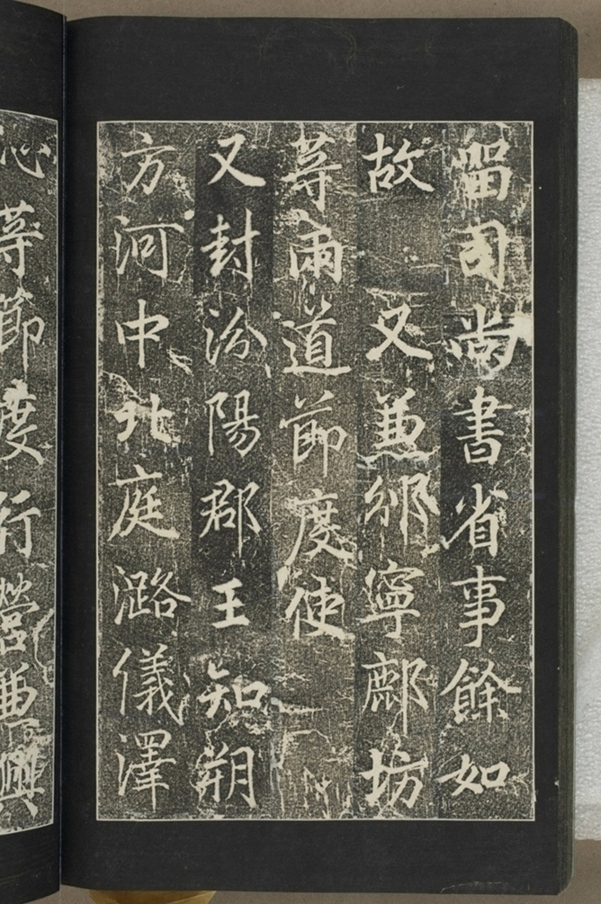 留司尚書省事餘如
故 又兼邠寧鄜坊
䓁兩道節度使
又封汾陽郡王知朔
方河中北庭潞儀澤
沁䓁節度行營兼興